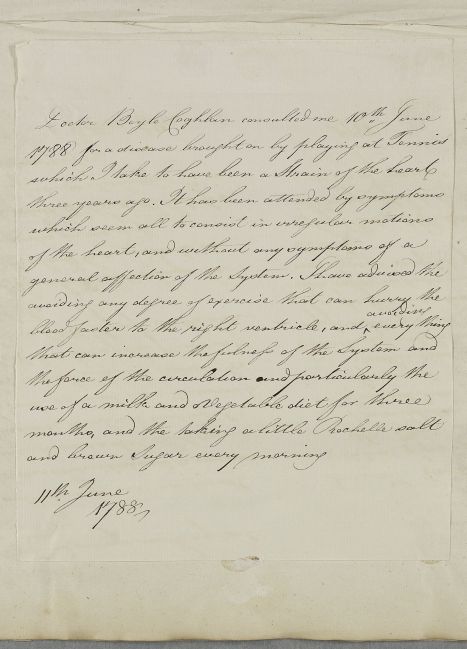 Doctor Boyle Coghlan consulted me 10th June
1788 for a disease brought on by playing at Tennis
which I take to have been a Strain of the heart
three years ago. It has been attended by symptoms
which seem all to consist in irregular motions
of the heart, and without any symptoms of a
general affection of the System. I have advised the
avoiding any degree of exercise that can hurry the
blood faster to the right ventricle, and avoiding every thing
that can increase the fulness of the System and
the force of the circulation and particularly the
use of a milk and Vegetable diet for three
months, and the taking a little Rochelle salt
and brown Sugar every morning
11th June
1788